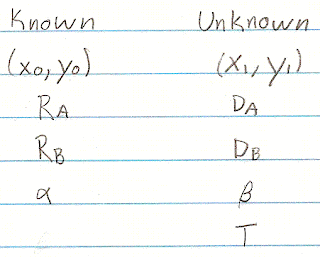 Known Unknown
(x₀, y₀) (x₁, y₁)
R_A D_A
R_B D_B
α β
T